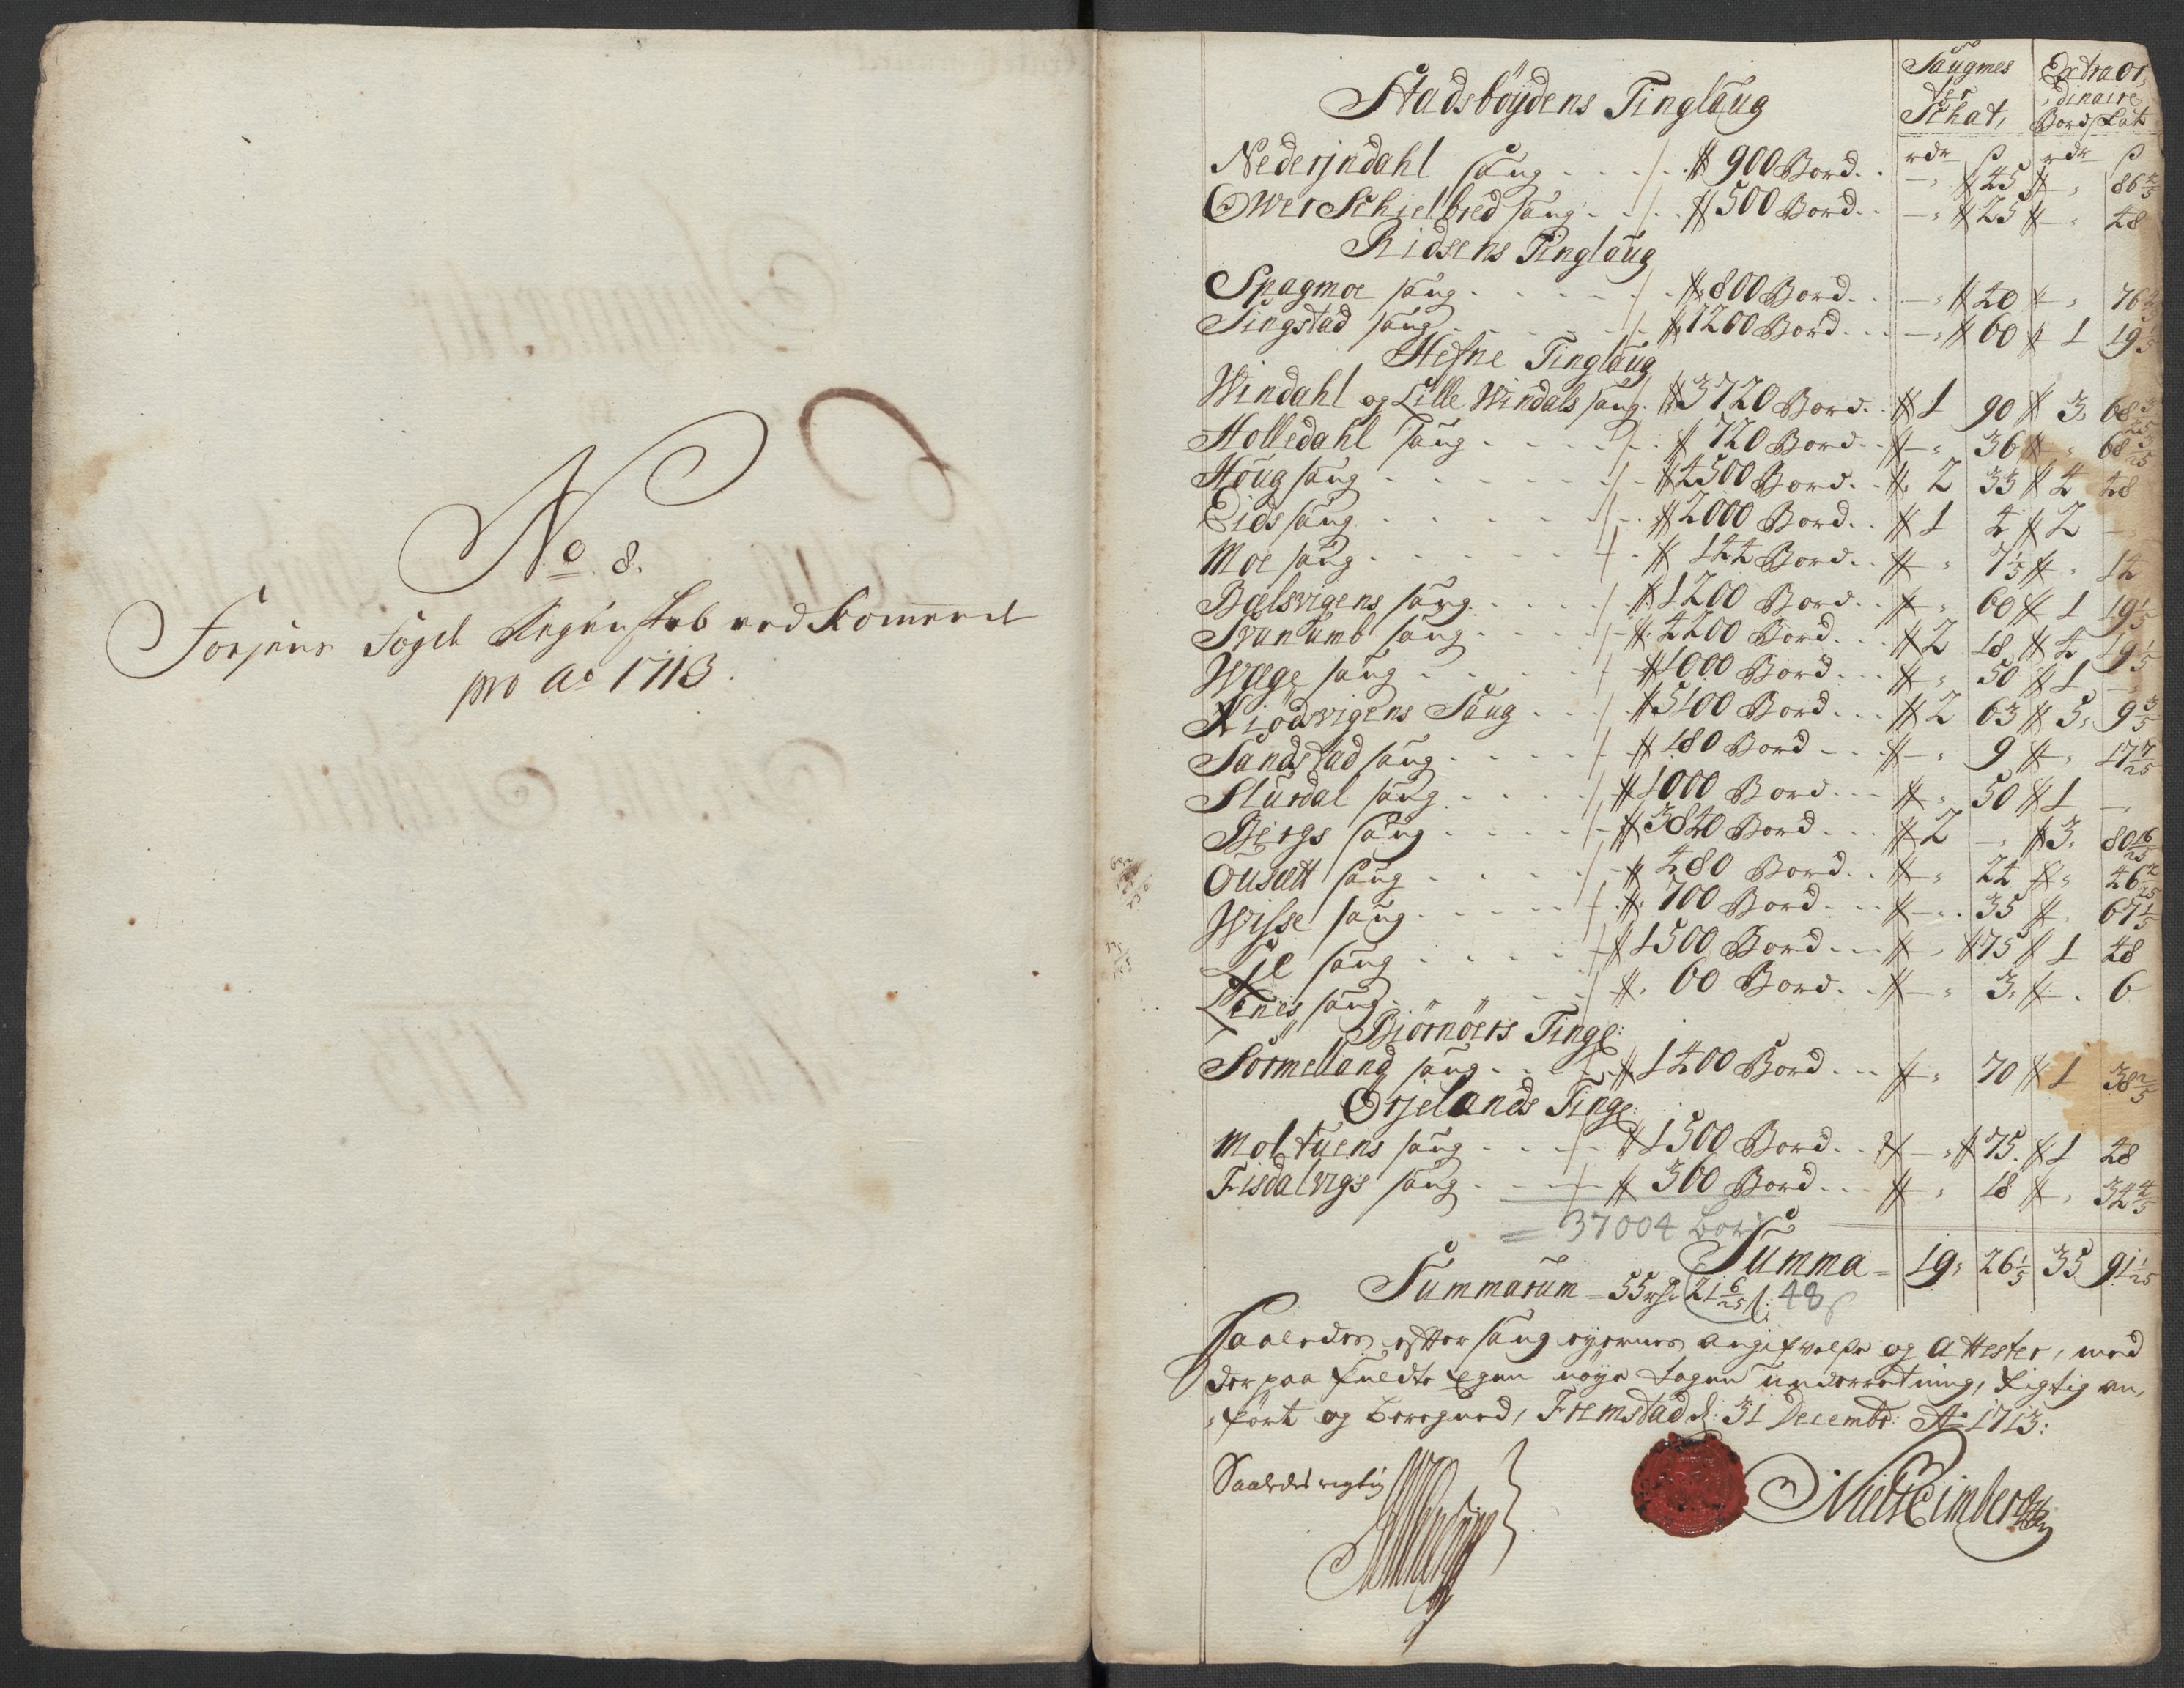 No 8.
Fosens Fogd Regenskab vedkommend
pro Ao 1713.
Saugmes Extraor,
ter dinaire
Schat, Bordskat
Stadsböydens Tinglaug
rdr ß rdr ß
Nederjndahl saug - - - # 900 Bord. . — " # 25 # — " 86 2/5
Ower Schielbred saug - - # 500 Bord. . — " # 25 # — " 48
Ridsens Tinglaug
Spagmoe saug - - - # 800 Bord. . — " # 40 # — " 76 4/5
Singstad saug - - - # 1200 Bord. . — " # 60 # 1 19 1/5
Hefne Tinglaug
Windahl og Lille Windals saug - # 3720 Bord. . # 1 90 # 3 68 3/25
Holledahl saug - - - # 720 Bord. . # — " 36 # " 68 3/25
Houg saug - - - # 4500 Bord. . # 2 33 # 4 48
Eids saug - - - # 2000 Bord. . # 1 4 # 2 —
Moe saug - - - # 144 Bord. . # — " 7 1/5 # " 14
Bælsvigens saug - - - # 1200 Bord. . # — " 60 # 1 19 1/5
Svanumb saug - - - # 4200 Bord. . # 2 18 # 4 19 1/5
Wæge saug - - - # 1000 Bord. . # — " 50 # 1 —
Kiödsvigens Saug - - - # 5100 Bord. . # 2 63 # 5 9 3/5
Sandstad saug - - - # 180 Bord - - # — " 9 # — " 17 7/25
Slurdal saug - - - # 1000 Bord - - # " 50 # 1 —
Bergs saug - - - # 3840 Bord - - # 2 — " # 3 80 16/25
Ousætt saug - - - # 480 Bord. . # — " 24 # " 46 2/25
Wisse saug - - - # 700 Bord - - # — " 35 # " 67 1/5
Lie saug - - - # 1500 Bord - - # — " # 75 # 1 48
Lenes saug - - - # 60 Bord. . # — " 3 # — " 6
Biörnöers Tingl:
Sormelland saug - - - # 1400 Bord - - # — " 70 # 1 38 2/5
Örjelands Tingl:
Moltuens saug - - - # 1500 Bord. . # — " # 75 # 1 48
Fisdalvigs saug - - - # 360 Bord - - # — " 18 # " 34 4/5
= 37004 bor
Summa = 19 " 26 1/5 35 91 1/25
Summarum = 55 rdr 21 6/25 ß: 48 ß
Saaledes efter saug eyernes angifvelse og Attester, med
der paa fuldte Egen nöye tagen underretning, Rigtig an,
fört og beregned, Fremstad d: 31 Decembr: Ao 1713:
Saaledes rigtig
Niels Eimberg